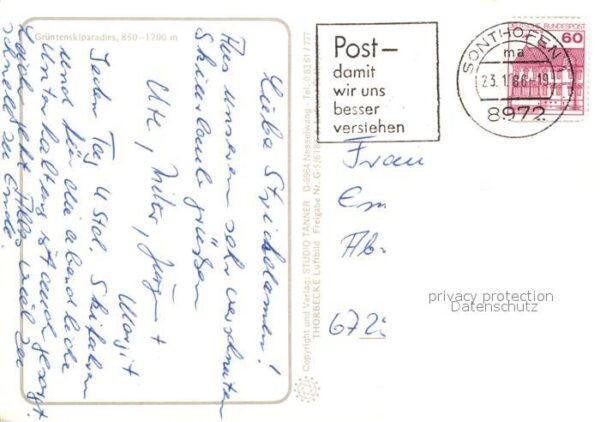 Grüntenskiparadies, 850–1700 m
Liebe
Aus unserem sehr verschneiten
Skiurlaub grüßen
Ute, Dieter, Jürgen +
Margit
Jeden Tag 4 Std. Skifahren
und für die abendliche
Unterhaltung ist auch gesorgt.
Leider geht Alles viel zu
schnell zu Ende.
Copyright und Verlag: STUDIO TANNER D-8964 Nesselwang – Tel. 0 83 61 / 777
THORBECKE Luftbild Freigabe Nr.
Post–
damit
wir uns
besser
verstehen
SONTHOFEN 1
ma
23.1.86-19
8972
DEUTSCHE BUNDESPOST
60
Frau
Em
Ab
672
privacy protection
Datenschutz